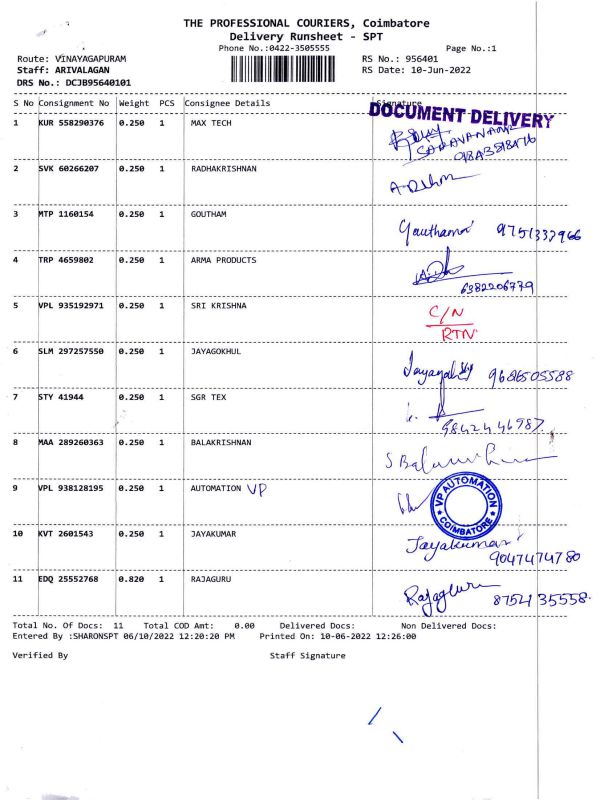 THE PROFESSIONAL COURIERS, Coimbatore
Delivery Runsheet - SPT
Phone No.:0422-3505555 Page No.:1
Route: VINAYAGAPURAM RS No.: 956401
Staff: ARIVALAGAN RS Date: 10-Jun-2022
DRS No.: DCJB95640101
S No Consignment No Weight PCS Consignee Details Signature
DOCUMENT DELIVERY
1 KUR 558290376 0.250 1 MAX TECH
SARAVANAN
2 SVK 60266207 0.250 1 RADHAKRISHNAN
3 MTP 1160154 0.250 1 GOUTHAM Gauthama 9751337966
4 TRP 4659802 0.250 1 ARMA PRODUCTS
6382206779
5 VPL 935192971 0.250 1 SRI KRISHNA C/N
RTN
6 SLM 297257550 0.250 1 JAYAGOKHUL 9686505588
7 STY 41944 0.250 1 SGR TEX
9842446987
8 MAA 289260363 0.250 1 BALAKRISHNAN
9 VPL 938128195 0.250 1 AUTOMATION VP
VP AUTOMATION
COIMBATORE
10 KVT 2601543 0.250 1 JAYAKUMAR Jayakumar
9047474780
11 EDQ 25552768 0.820 1 RAJAGURU Rajaguru 8754135558
Total No. Of Docs: 11 Total COD Amt: 0.00 Delivered Docs: Non Delivered Docs:
Entered By :SHARONSPT 06/10/2022 12:20:20 PM Printed On: 10-06-2022 12:26:00
Verified By Staff Signature